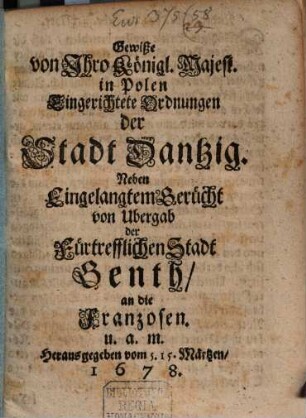 Eur. 375(58
Gewiße
von Ihro Königl. Majest.
in Polen
Eingerichtete Ordnungen
der
Stadt Dantzig.
Neben
Eingelangtem Gerücht
von Ubergab
der
Fürtrefflichen Stadt
Genth/
an die
Franzosen.
u. a. m.
Heraus gegeben vom 5. 15. Märtzen/
1678.
BIBLIOTHECA
REGIA
MONACENSIS